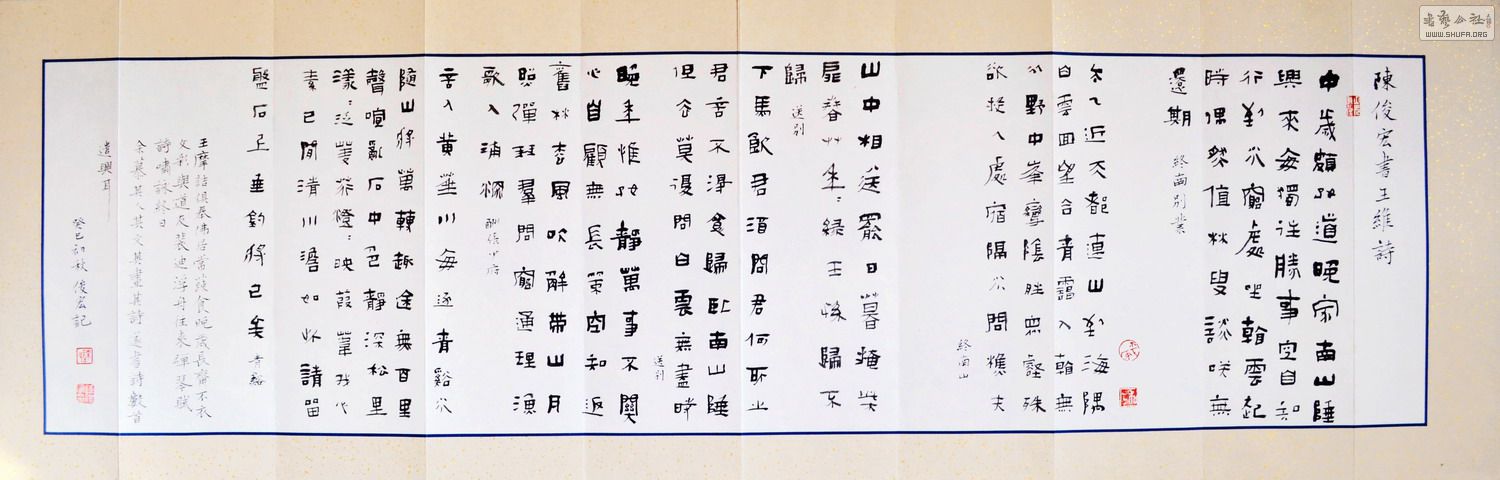 陳俊宏書王維詩
中歲頗好道晚家南山陲
興來每獨往勝事空自知
行到水窮處坐看雲起
時偶然值林叟談咲無
還期 終南別業
太乙近天都連山到海隅
白雲回望合青靄入看無
分野中峯變陰晴眾壑殊
欲投人處宿隔水問樵夫
終南山
山中相送罷日暮掩柴
扉春艸年〻綠王孫歸不
歸 送別
下馬飲君酒問君何所之
君言不得意歸臥南山陲
但去莫復問白雲無盡時
送別
晚年惟好靜萬事不關
心自顧無長策空知返
舊林松風吹解帶山月
照彈琴羣問窮通理漁
歌入浦深 酬張少府
言入黃華川每逐青谿水
隨山將萬轉趣途無百里
聲喧亂石中色靜深松里
漾〻泛菱荇澄〻映葭葦我心
素已閒清川澹如此請留
盤石上垂釣將已矣 青谿
王摩詰俱奉佛居常蔬食晚歲長齋不衣
文彩與道友裴迪浮舟往來彈琴賦
詩嘯詠終日
余慕其人其文其畫其詩遂書詩數首
遣興耳
癸巳初秋 俊宏記
書藝公社
WWW.SHUFA.ORG